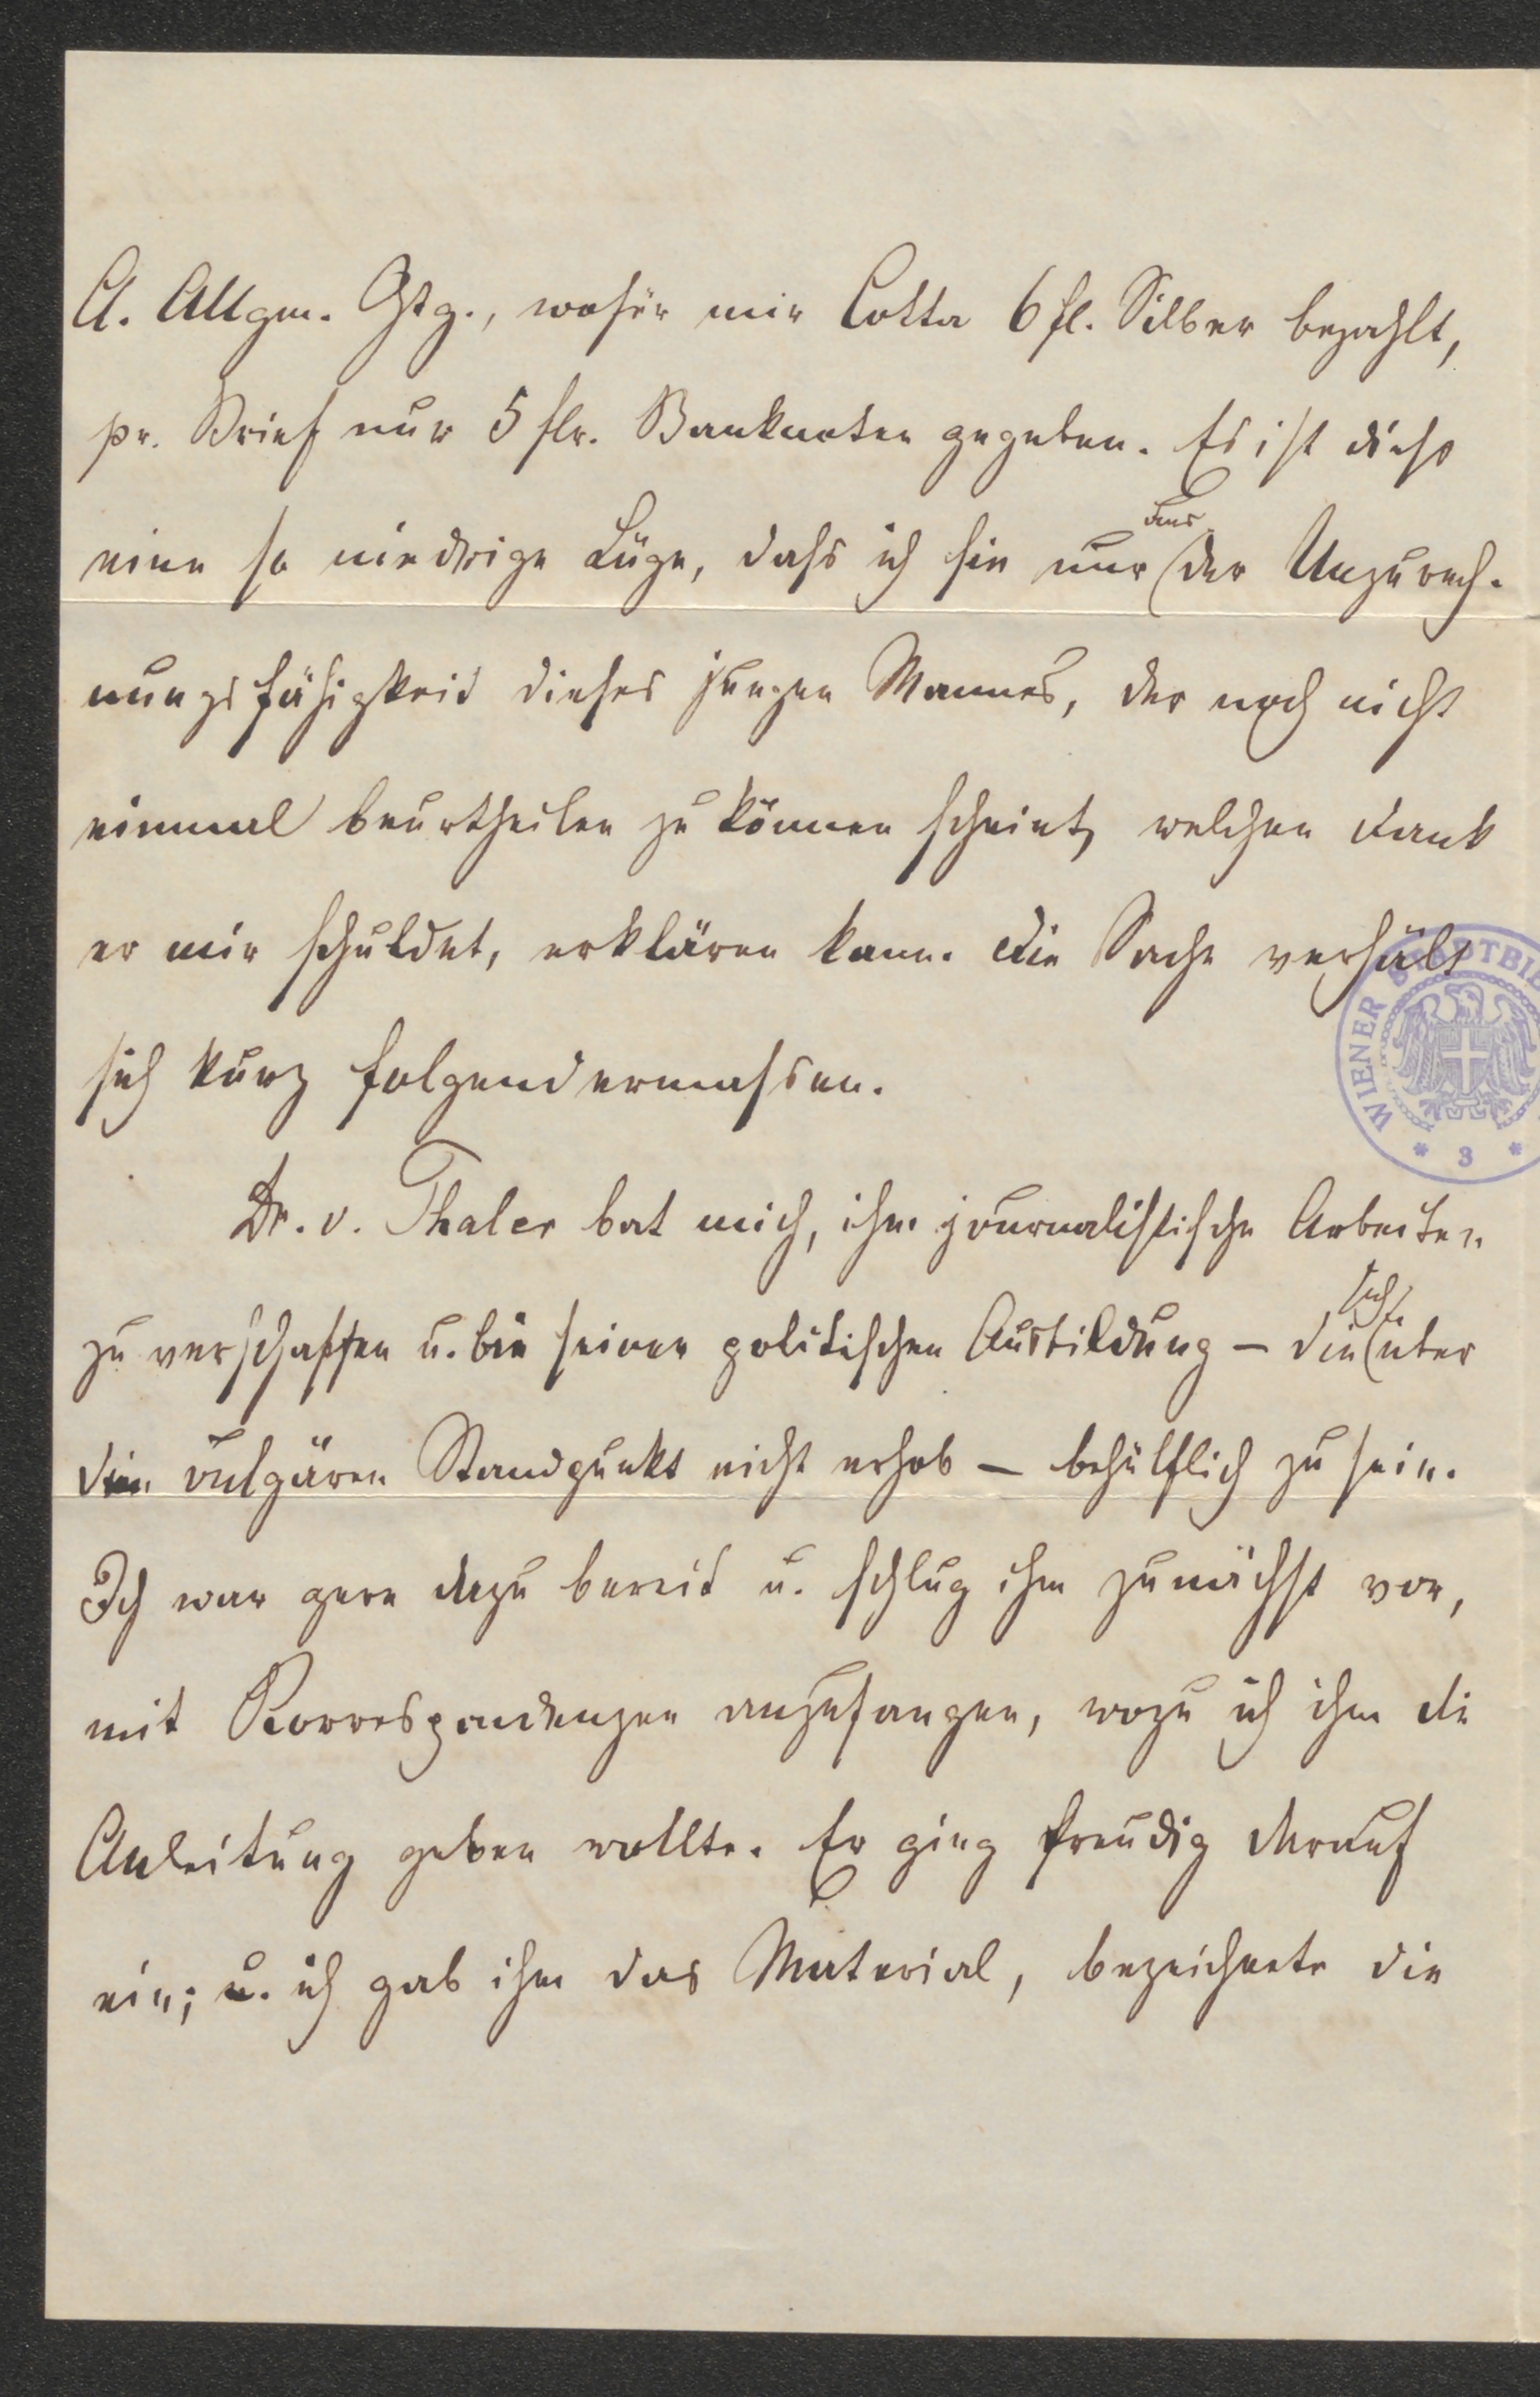 A. Allgm. Ztg., wofür mir Cotta 6 fl. Silber bezahlt,
pr. Brief nur 5 flr. Banknoten gegeben. Es ist diese
eine so niedrige Lüge, dass ich sie nur aus der Unzurech-
nungsfähigkeit dieses jungen Mannes, der noch nicht
einmal beurtheilen zu können scheint, welchen Dank
er mir schuldet, erklären kann. Die Sache verhält
sich kurz folgendermassen.
Dr. v. Thaler bat mich, ihm journalistische Arbeiten
zu verschaffen u. bei seiner politischen Ausbildung – die sich über
den vulgären Standpunkt nicht erhob – behülflich zu sein.
Ich war gern dazu bereit u. schlug ihm zunächst vor,
mit Korrespondenzen anzufangen, wozu ich ihm die
Anleitung geben wollte. Er ging freudig darauf
ein; u. ich gab ihm das Material, bezeichnete die
WIENER STADTBIB
* 3 *